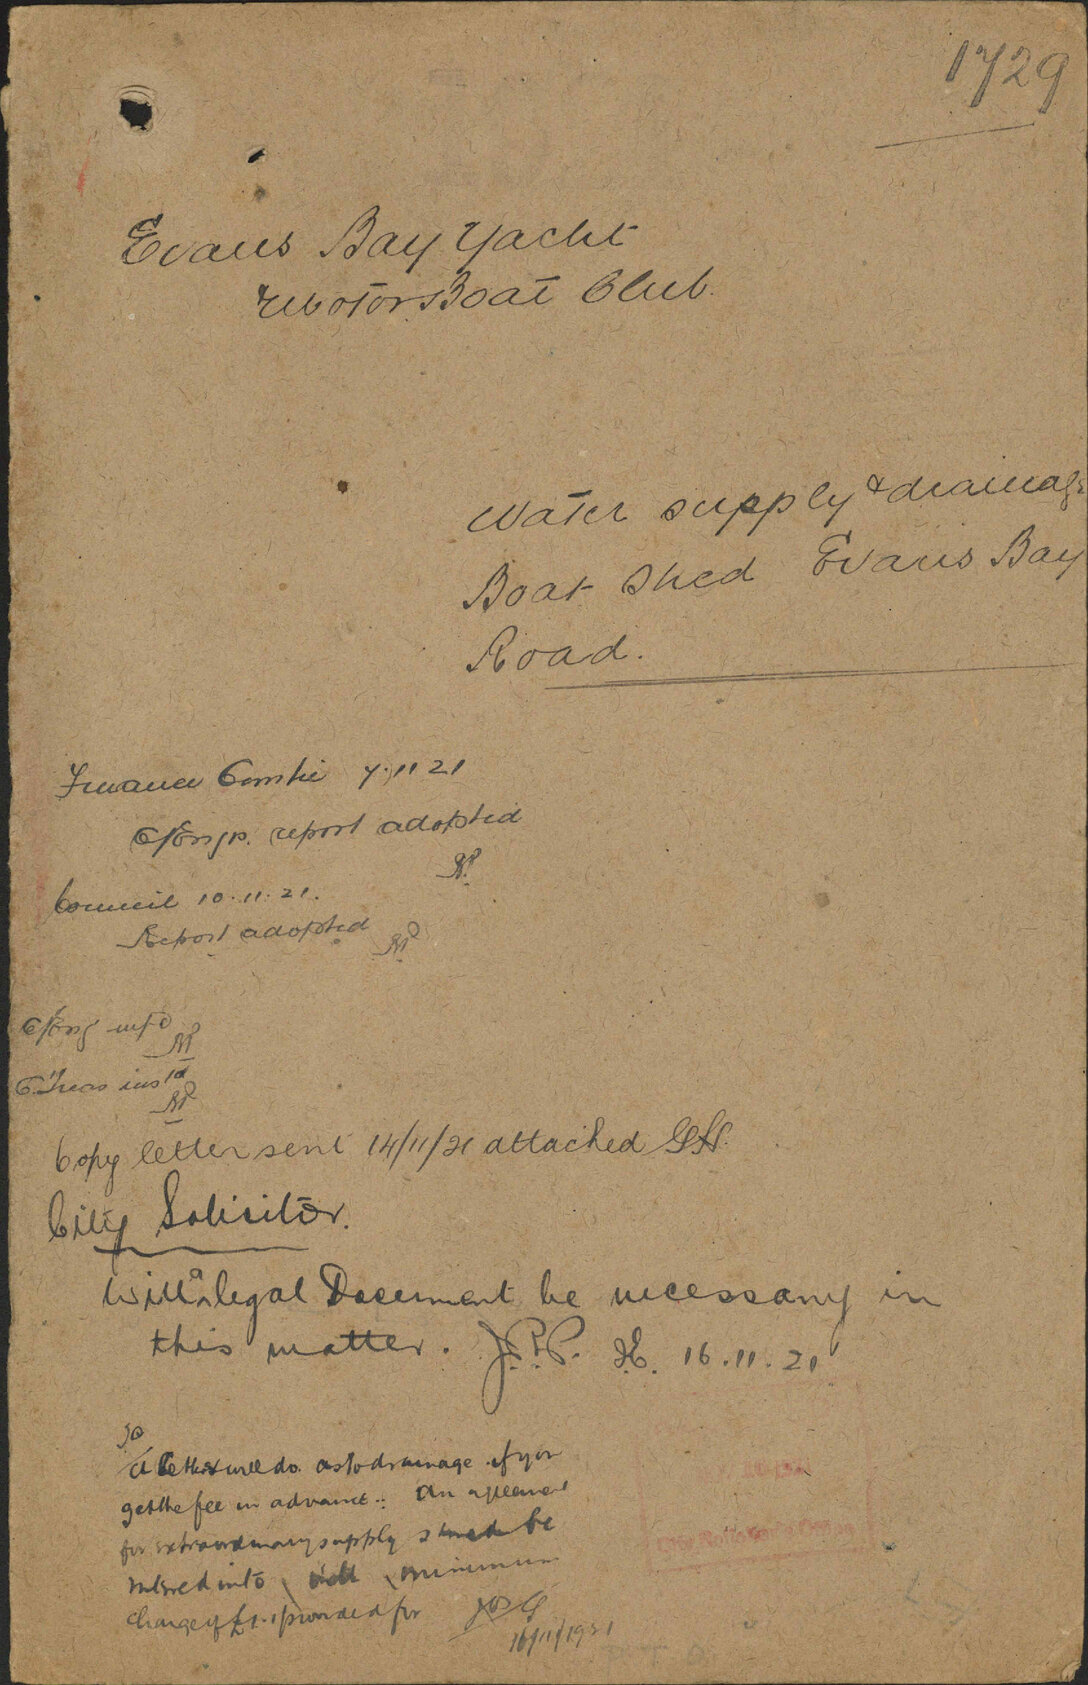 1729
Evans Bay Yacht
& Motor Boat Club.
Water supply & drainage
Boat Shed Evans Bay
Road.
Finance Comtee 7.11 21
C/Engr. report adopted
Council 10.11.21.
Report adopted
C/Eng infd
C.Treas insd
Copy letter sent 14/11/21 attached
City Solicitor.
Will a legal Document be necessary in
this matter. J.P.P. 16.11.21
A letter will do as to drainage if you
get the fee in advance. An agreement
for extraordinary supply should be
entered into minimum
charge of £1.1 provided for
16/11/1921
P.T.O.